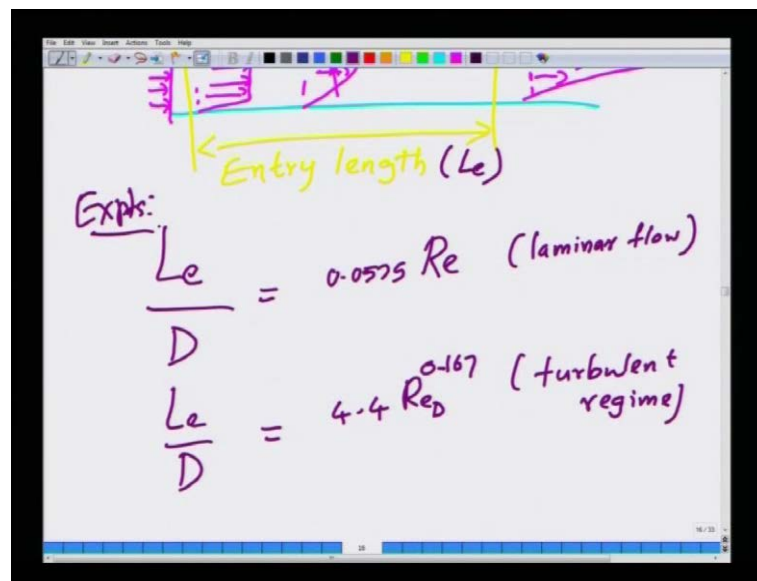 File Edit View Insert Actions Tools Help
Entry length (Le)
Expts:
Le / D = 0.0575 Re (laminar flow)
Le / D = 4.4 Re_D^0.167 (turbulent regime)
16/33
16